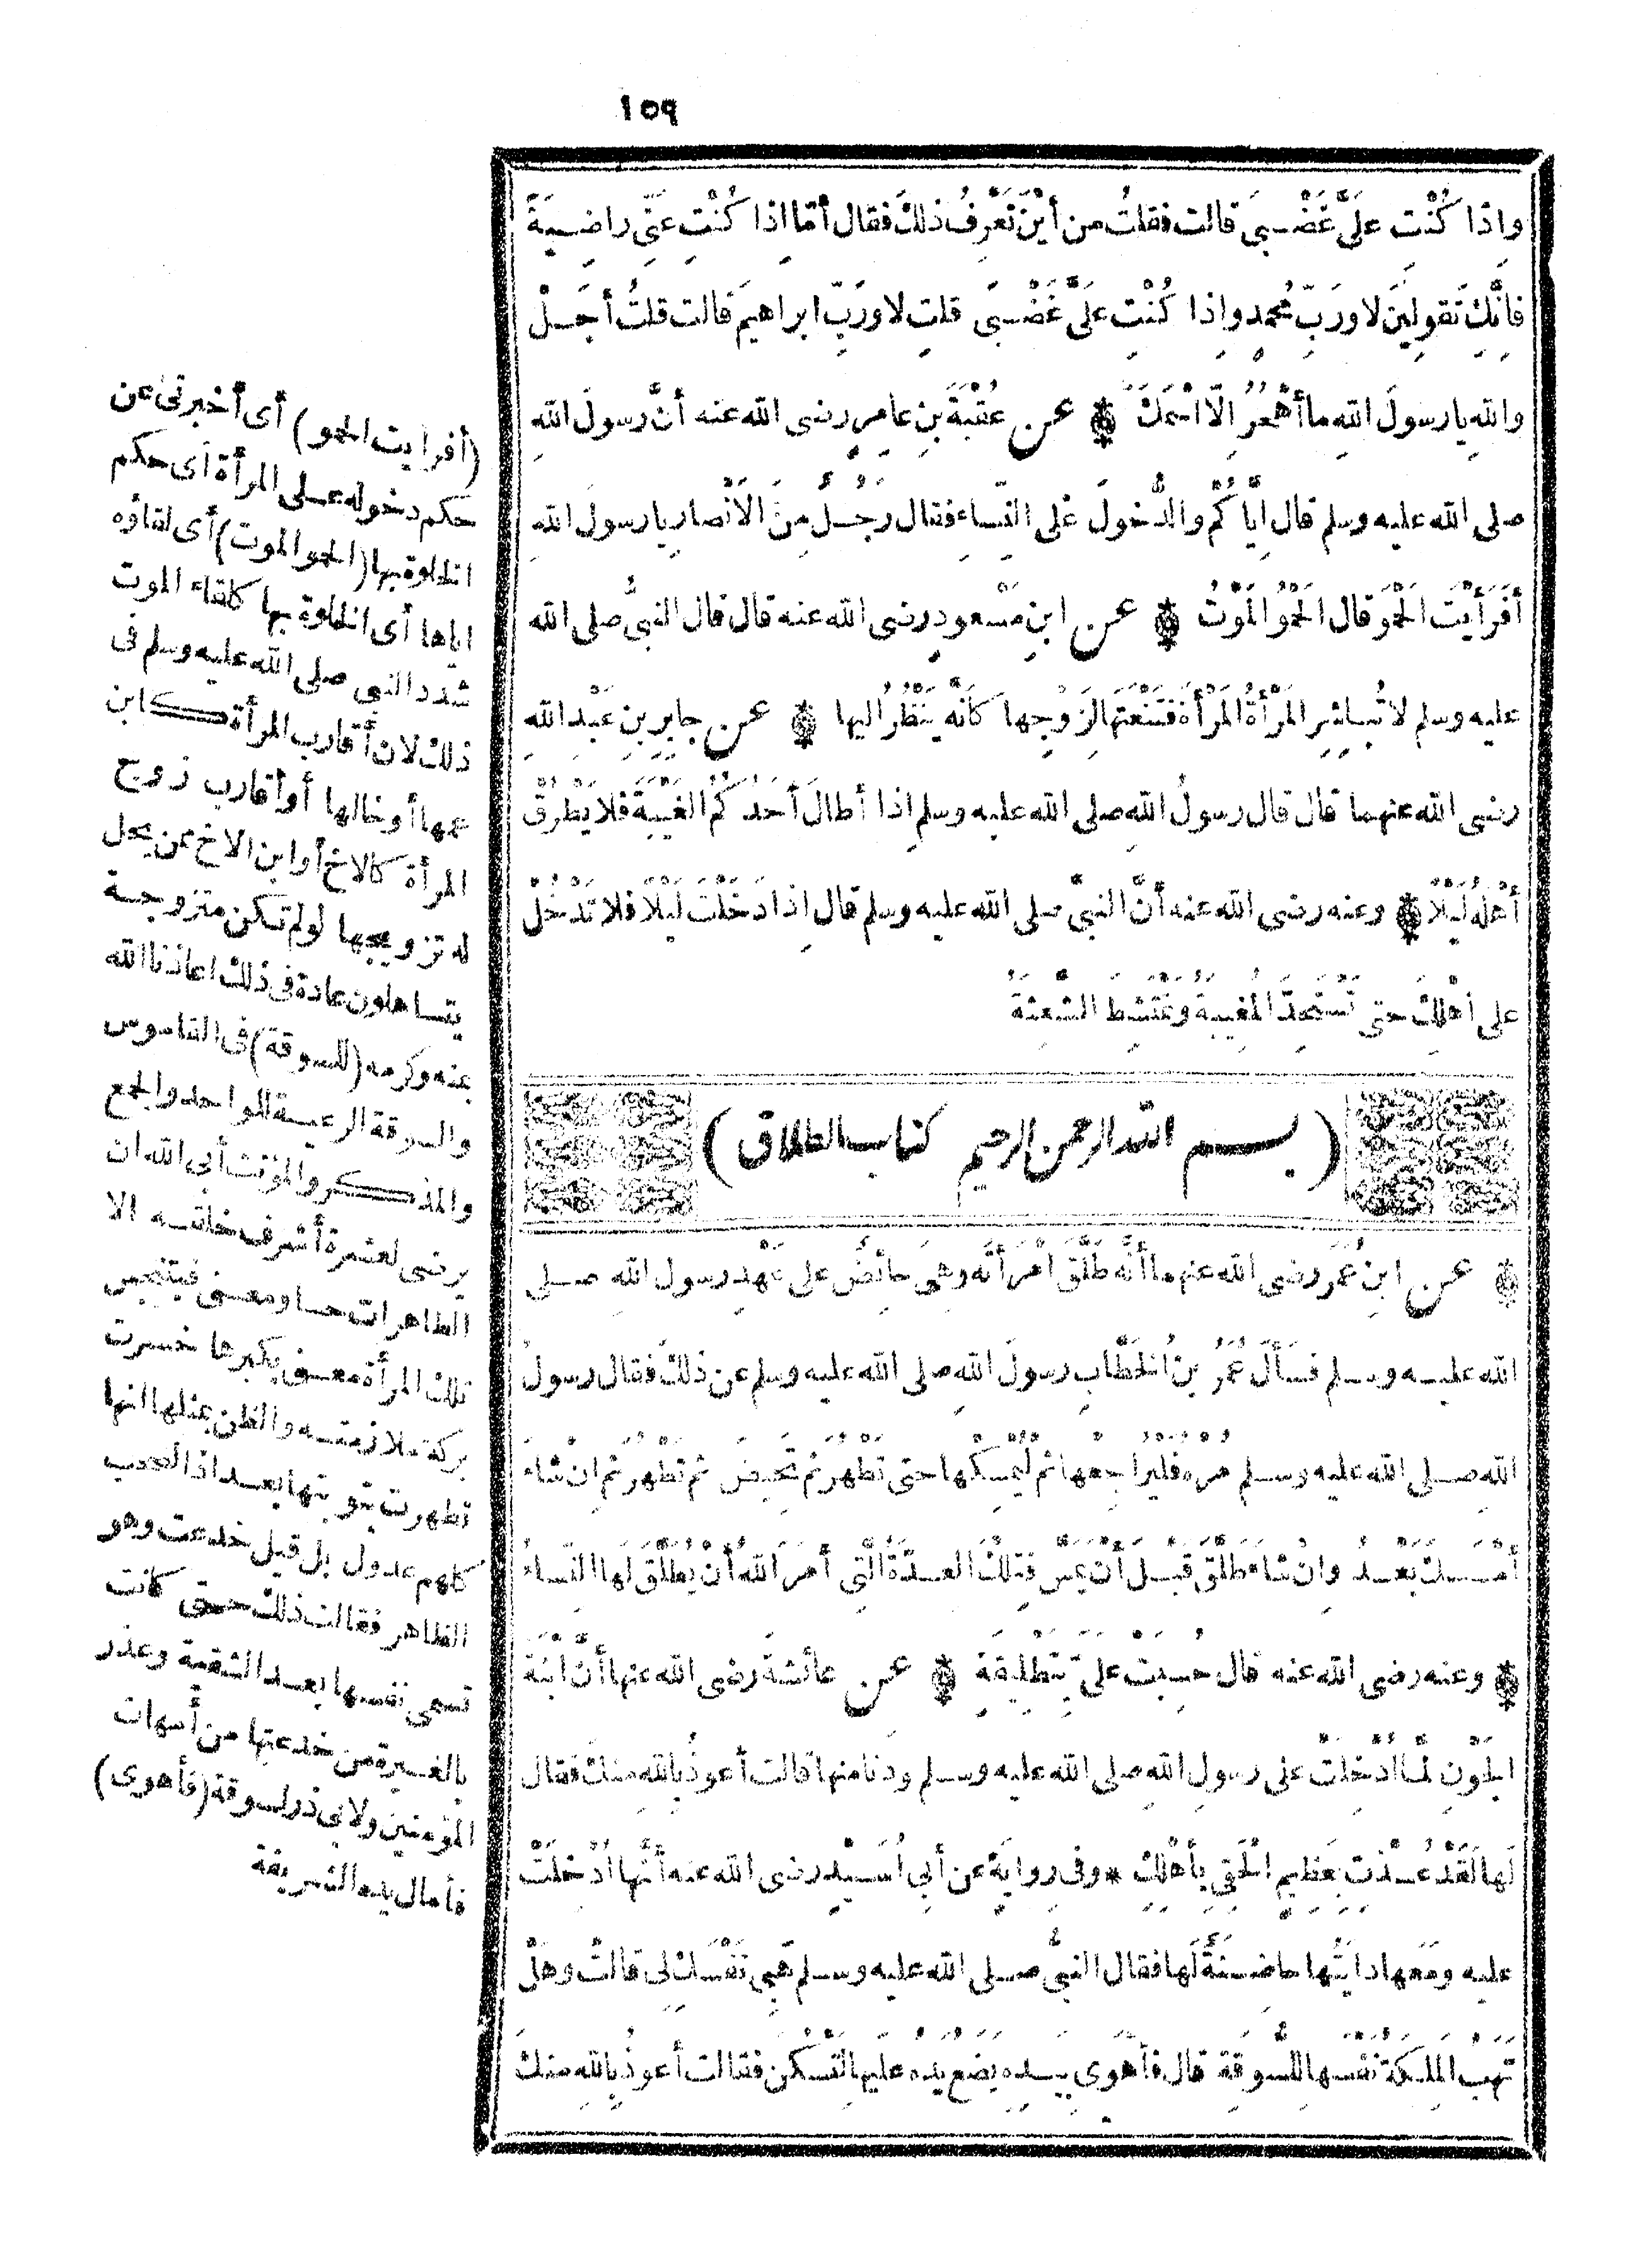 ١٥٩
واِذا كُنْتِ عَلَىَّ غَضْبَى قالت فقلتُ من أيْنَ تَعْرِفُ ذلكَ فقال أمّا اِذا كُنْتِ عَنّى راضِيَةً
فاِنَّكِ تَقولينَ لا ورَبّ مُحمدٍ واِذا كُنْتِ عَلَىَّ غَضْبَى قلتِ لا ورَبّ ابراهيمَ قالت قلتُ أجَلْ
واللهِ يا رسولَ اللهِ ما أهْجُرُ اِلّا اسْمَكَ ۞ عن عُقْبَةَ بنِ عامِرٍ رضى الله عنه أنَّ رسولَ اللهِ
صلى الله عليه وسلم قال اِيَّا كُمْ والدُّخولَ عَلى النّساءِ فقال رَجُلٌ مِنَ الاَنْصارِ يا رسولَ اللهِ
أفَرَأيْتَ الحَمْوَ قال الحَمْوُ المَوْتُ ۞ عن ابنِ مَسْعودٍ رضى الله عنه قال قال النبىُّ صلى الله
عليه وسلم لا تُباشِرِ المَرْأةُ المَرْأةَ فَتَنْعَتَها لِزَوْجِها كَأنَّه يَنْظُرُ اليها ۞ عن جابِرِ بنِ عَبْدِ اللهِ
رضى الله عنهما قال قال رسولُ اللهِ صلى الله عليه وسلم اِذا أطالَ أحَدُ كُمُ الغَيْبَةَ فلا يَطْرُقْ
أهْلَه لَيْلًا ۞ وعنه رضى الله عنه أنَّ النبىَّ صلى الله عليه وسلم قال اِذا دَخَلْتَ لَيْلًا فلا تَدْخُلْ
على أهْلِكَ حتى تَسْتَحِدَّ المُغِيبَةُ وتَمْتَشِطَ الشَّعِثَةُ
(بسم الله الرحمن الرحيم كتاب الطلاق)
۞ عن ابنِ عُمَرَ رضى الله عنهما أنَّه طَلَّقَ امْرَأتَه وهِىَ حائِضٌ على عَهْدِ رسولِ اللهِ صلى
الله عليه وسلم فسَأَلَ عُمَرُ بنُ الخَطَّابِ رسولَ اللهِ صلى الله عليه وسلم عن ذلكَ فقال رسولُ
اللهِ صلى الله عليه وسلم مره فليُراجِعها ثم لْيُمْسِكْها حتى تَطْهُرَ ثم تَحِيضَ ثم تَطْهُرَ ثم اِن شاءَ
أمْسَكَ بَعْدُ واِنْ شاءَ طَلَّقَ قَبْلَ أنْ يَمَسَّ فتِلْكَ العِدَّةُ الَّتِى أمَرَ اللهُ أنْ يُطَلَّقَ لَها النّساءُ
۞ وعنه رضى الله عنه قال حُسِبَتْ عَلىَّ بِتَطْلِيقَةٍ ۞ عن عائشةَ رضى الله عنها أنَّ ابْنَةَ
الجَوْنِ لمَّا اُدْخِلَتْ على رسولِ اللهِ صلى الله عليه وسلم ودَنا منها قالت أعوذُ بِاللهِ منكَ فقال
لَها لَقَدْ عُذْتِ بِعَظِيمٍ الْحَقِى بِأهْلِكِ * وفى رِوايَةٍ عن أبى اُسَيْدٍ رضى الله عنه أنَّها اُدْخِلَتْ
عليه ومَعَها دايَتُها حاضِنَةٌ لَها فقال النبىُّ صلى الله عليه وسلم هَبِى نَفْسَكِ لِى قالتْ وهَلْ
تَهَبُ المَلِكَةُ نَفْسَها لِلسُّوقَةِ قال فأهْوَى بِيَدِه يَضَعُ يَدَه عليها لِتَسْكُنَ فقالت أعوذُ بِاللهِ منكَ
(أفرأيت الحمو) أى أخبرنى عن
حكم دخوله على المرأة أى حكم
الخلوة بها (الحمو الموت) أى لقاؤه
اياها أى الخلوة بها كلقاء الموت
شدد النبى صلى الله عليه وسلم فى
ذلك لان أقارب المرأة كابن
عمها أو خالها أو أقارب زوج
المرأة كالاخ أو ابن الاخ ممن يحل
له تزويجها لو لم تكن متزوجة
يتساهلون عادة فى ذلك اعاذنا الله
بمنه وكرمه (للسوقة) فى القاموس
والسوقة الرعية للواحد والجمع
والمذكر والمؤنث أبى الله ان
يرضى لعشرة أشرف خلقه الا
الطاهرات حسا ومعنى فبتنجس
تلك المرأة معنى بكبرها خسرت
بركة ملازمته والظن بمثلها انها
تطهرت بتوبتها بعد اذ الصحب
كلهم عدول بل قيل خدعت وهو
الظاهر فقالت ذلك حتى كانت
تسمى نفسها بعد الشقية وعذر
بالغيرة من خدعتها من أمهات
المؤمنين ولابى ذر لسوقة (فأهوى)
فأمال يده الشريفة